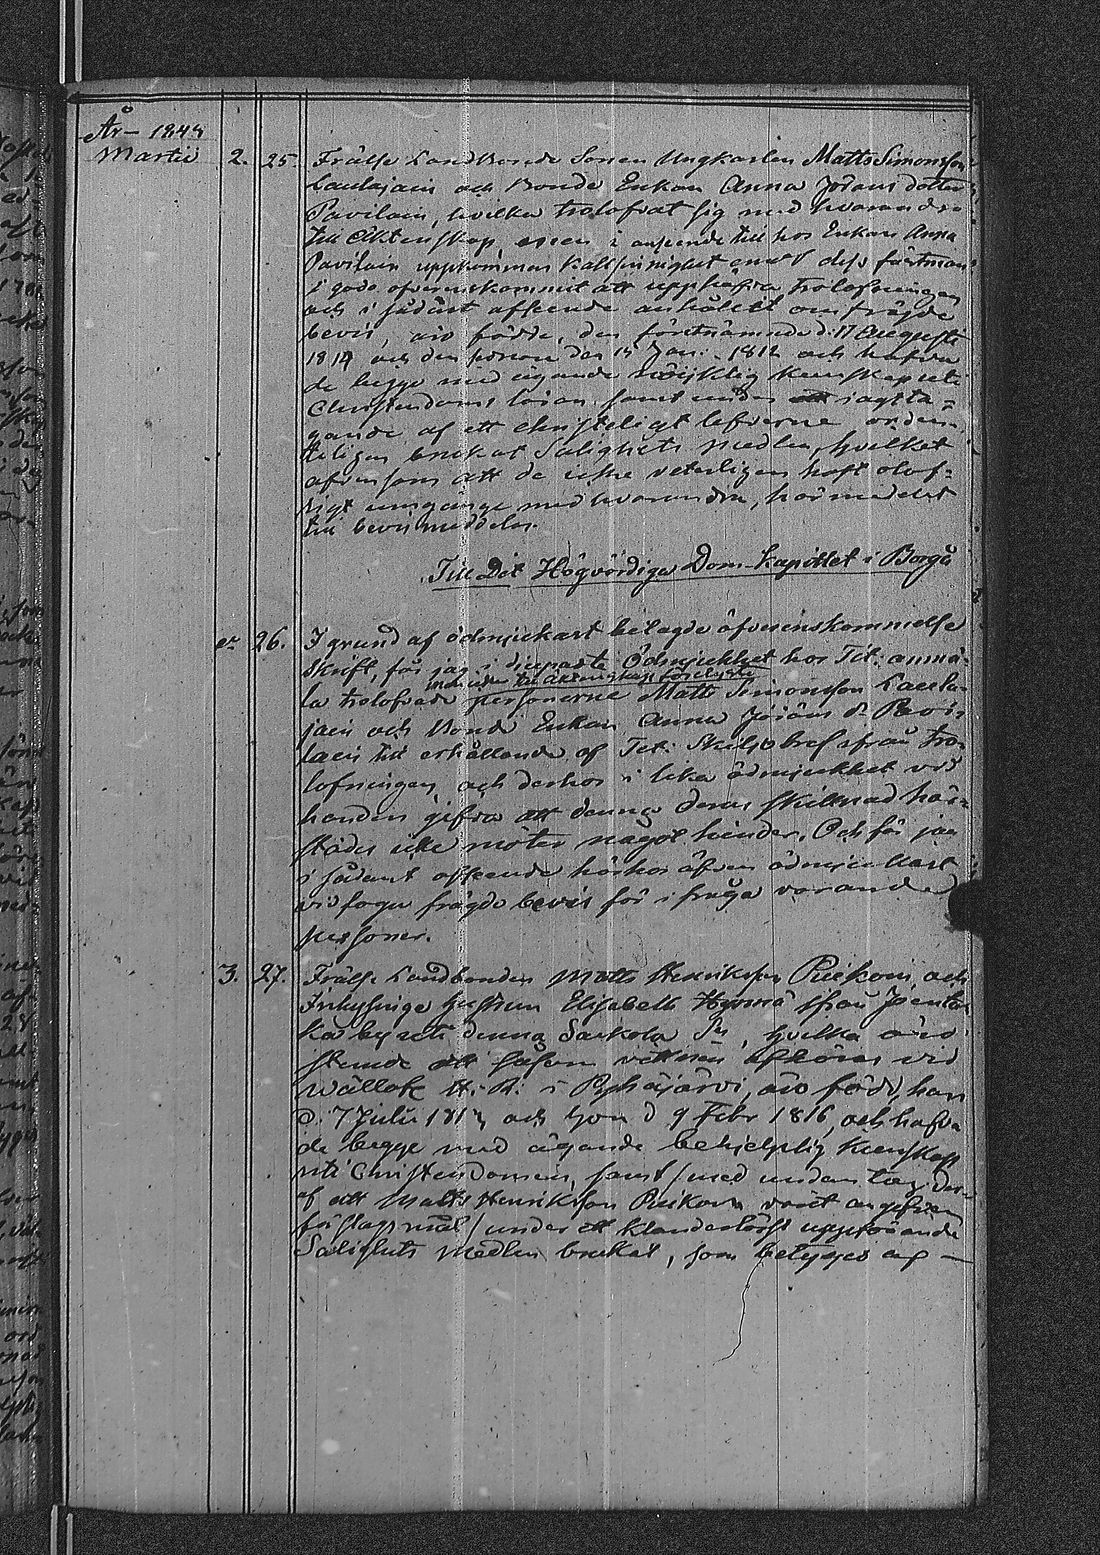 År 1844
Martii 2. 25. Frälse Landbonde Sonen Ungkarlen Matts Simonsson
Laulajain och Bonde Enkan Anna Jöransdotter
Pavilain, hvilka trolofvat sig med hvarandra
till Äktenskap, men i anseende till hos Enkan Anna
Pavilain uppkommen kallsinnighet emot dess fästman
i godo öfverenskommit att upphäfva trolofningen
och i sådant afseende anhållit om frägde
bevis, äro födde, den förstnämnde d. 17 Augusti
1814 och den senare den 15 Jan. 1812 och hafva
de begge med ägande nöjeklig kunskap uti
Christendoms läran samt under iagtta-
gande af ett christeligt lefverne orden-
teligen brukat Salighets medlen, hvilket
äfvensom att de icke veterligen haft olof-
ligt umgänge med hvarandra, härmedelst
till bevis meddelas.
Till Det Högvördiga Dom-Kapitlet i Borgå
26. I grund af ödmjukast belagde öfverenskommelse
skrift, får jag i djupaste Ödmjukhet hos Tit: anmä-
till äktenskap förelyste
la trolofvade personerne Matts Simonsson Laula-
jain och Bonde Enkan Anna Jöransdr Pavi-
lain till erhållande af Tit: Skiljobref ifrån tro-
lofningen, och derhos i lika ödmjukhet vid
handen gifva att denna deras skillnad här-
städes icke möter något hinder. Och får jag
i sådant afseende härhos äfven ödmjukast
vidfoga frägde bevis för i fråga varande
personer.
3. 27. Frälse Landbonden Matts Henriksson Puikoin och
Inhyssinge hustrun Elisabeth Hyvönä ifrån
by uti denna Sakkola Sn, hvilka äro
stemde att såsom vittnen afhöras vid
Wällofl. H. R. i Pyhäjärvi, äro födde, han
d. 7 Julii 1812 och hon d. 9 Febr 1816, och hafva
de begge med ägande behjelplig kunskap
uti Christendomen, samt /med undantag der-
af att Matts Henriksson Puikoin varit angifven
för slagsmål/ under ett klanderlöst uppförande
Salighets medlen brukat, som betygas af —